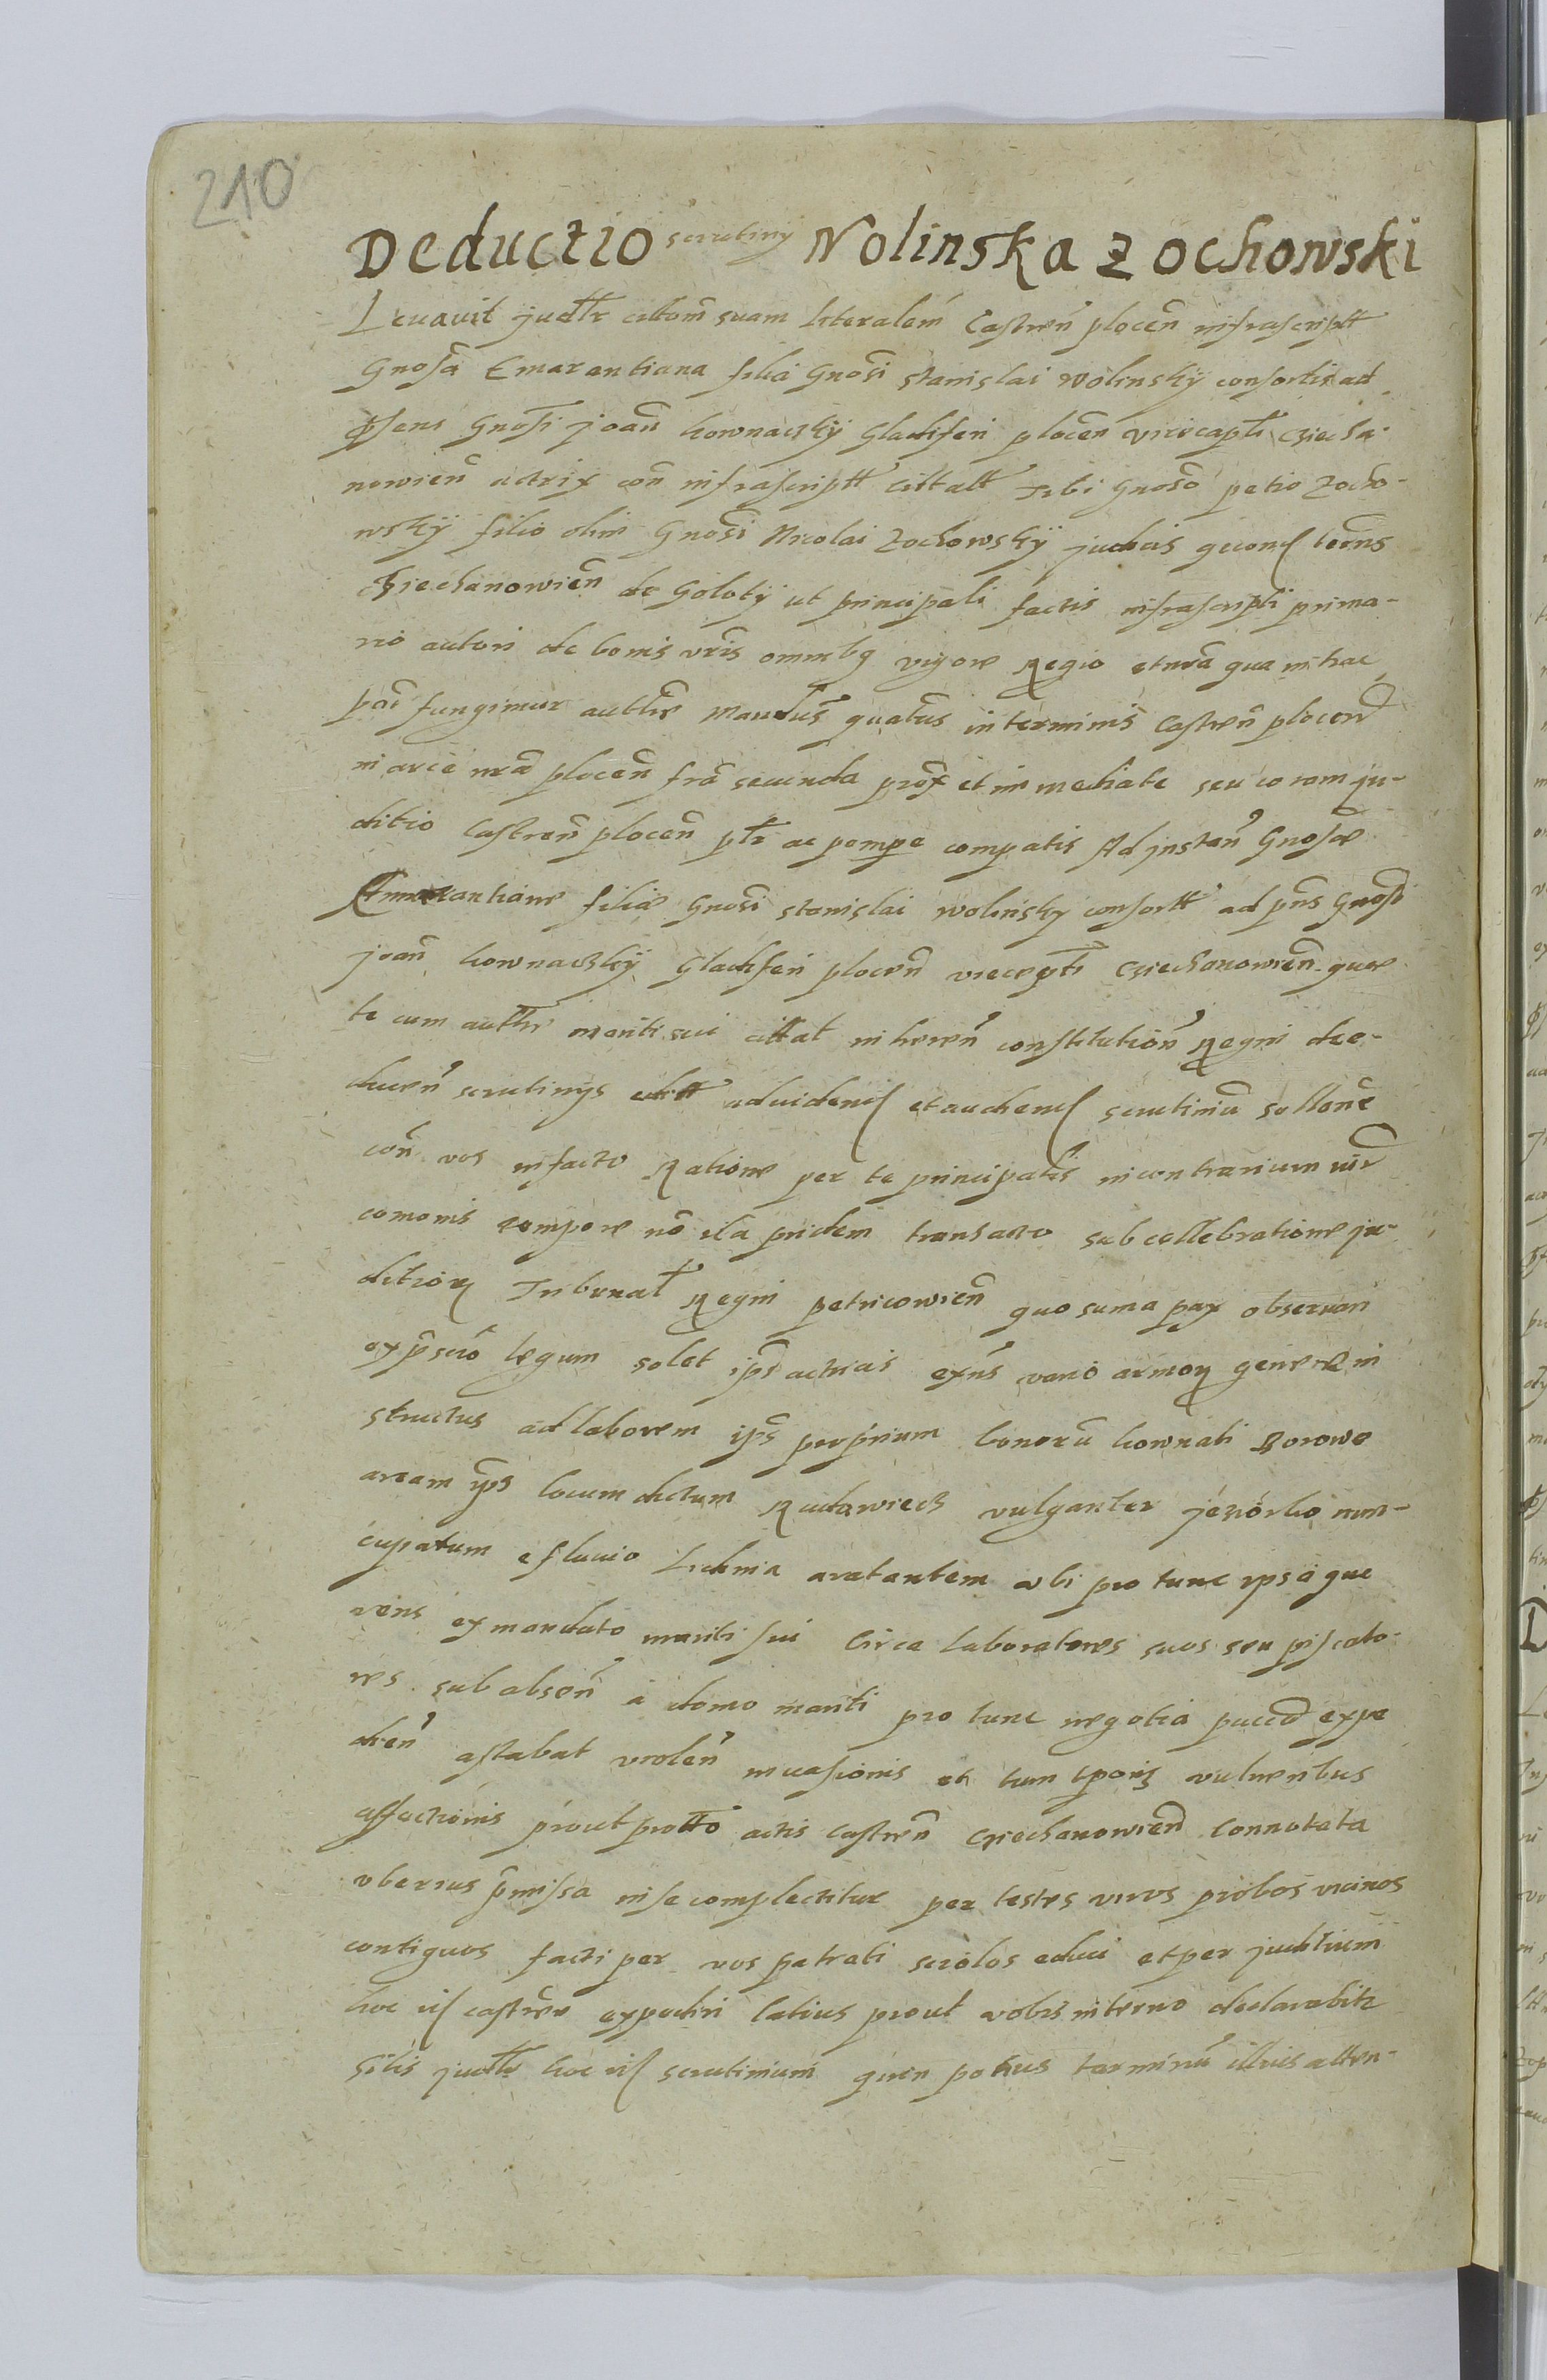 210
Deductio scrutiny Wolinska Zochowski
Levavit judtr cittom suam literalem Castren plocen infrascriptt
Gnosa Emarantiana filia Gnosi Stanislai Wolinsky consortis ad
psens Gnosi joan kownaczky Gladiferi plocen vicecapti Cziecha-
nowien actrix con infrascriptt cittatt Tibi Gnoso petro Zocho-
wsky filio olim Gnosi Nicolai Zochowsky judicis quond terris
Cziechanowien de Goloty ut principali factis infrascripti prima-
rio autori de bonis vris omnibq vigore Regio et nra qua in hac
pte fungimur autthe Mandus quatus in terminis Castren plocen
in arce nra plocen fra secunda prox et immediate seu coram ju-
ditio Castren plocen ptr ac pempe compatis Ad jnstan Gnosae
Emarantiane filiae Gnosi Stanislai Wolinsky consortt ad pns Gnosi
joan kownaczky Gladiferi plocen vicecapti Cziechanowien quae
te cum autthe mariti sui cittat inheren constitution Regni de
ducen scrutinys editt ad videnд et audiend scrutiniu sollone
con vos in facto Ratione per te principalis in contrarium iuris
comonis tempore no ita pridem transacto sub cellebratione ju-
ditior Tribunal Regni petricowien quo suma pax observari
ex pscro legum solet ips actricis exns vario armor genere in
structus ad laborem ips proprium bonoru kownati Borowe
aream ips locum dictum Rudawiech vulganter jeziorko nun-
cupatum e fluvio Lidinia aratantem ubi pro tunc ipsa que
rens ex mandato mariti sui Circa laboratores suos seu piscato-
res sub absen a domo mariti pro tunc negotia expe
dien astabat violen invasionis et tum tporis vulneribus
affectionis prout protto actis Castren Cziechanowien Connotata
uberius pmissa in se complectitur per testes viros probos vicinos
contiguos facti per vos patrati sciolos educi et per juditium
hoc castren expediri latius prout vobis in terno declarabitr
Sitis judtr hoc scrutinium terminu illius atten-